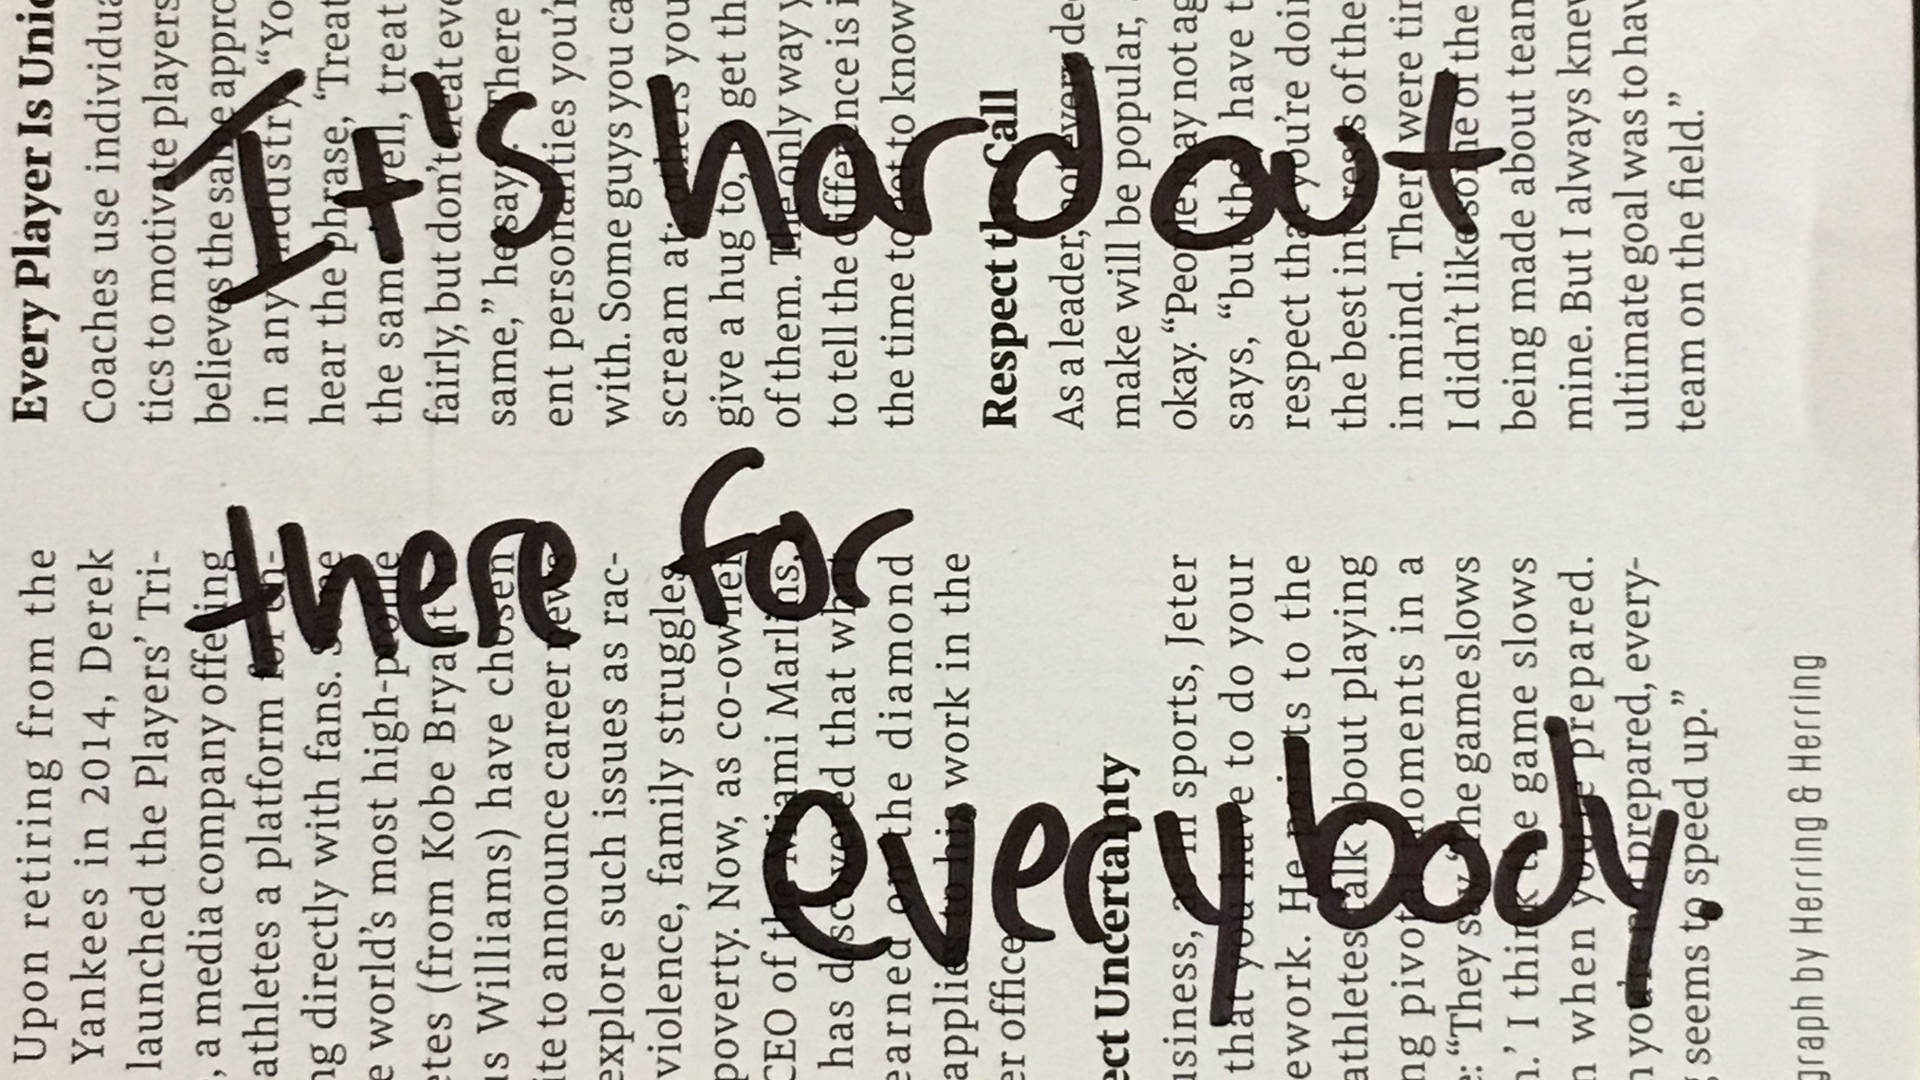 It's hard out
there for
everybody.
Upon retiring from the
Yankees in 2014, Derek
launched the Players' Tri-
, a media company offering
athletes a platform for en-
ng directly with fans. Some
e world's most high-profile
etes (from Kobe Bryant
us Williams) have chosen
ite to announce career news
explore such issues as rac-
violence, family struggles,
poverty. Now, as co-owner
CEO of the Miami Marlins,
has discovered that what
earned on the diamond
applies to his work in the
er office
ect Uncertainty
usiness, as in sports, Jeter
that you have to do your
ework. He points to the
athletes talk about playing
ng pivotal moments in a
e: "They say 'the game slows
n.' I think the game slows
n when you're prepared.
n you're not prepared, every-
g seems to speed up."
graph by Herring & Herring
Every Player Is Uniq
Coaches use individua
tics to motivate players
believes the same appro
in any industry. "Yo
hear the phrase, 'Treat
the same well, treat
fairly, but don't treat eve
same,'" he says. There
ent personalities you'r
with. Some guys you ca
scream at; others you
give a hug to, get th
of them. The only way y
to tell the difference is i
the time to get to know
Respect the Call
As a leader, not every de
make will be popular,
okay. "People may not ag
says, "but they have t
respect that you're doin
the best interests of the
in mind. There were tim
I didn't like some of the
being made about team
mine. But I always knew
ultimate goal was to hav
team on the field."